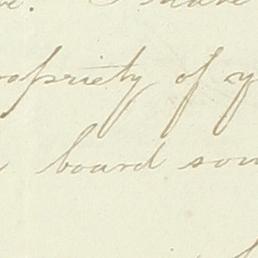 have
ropriety of y
board som